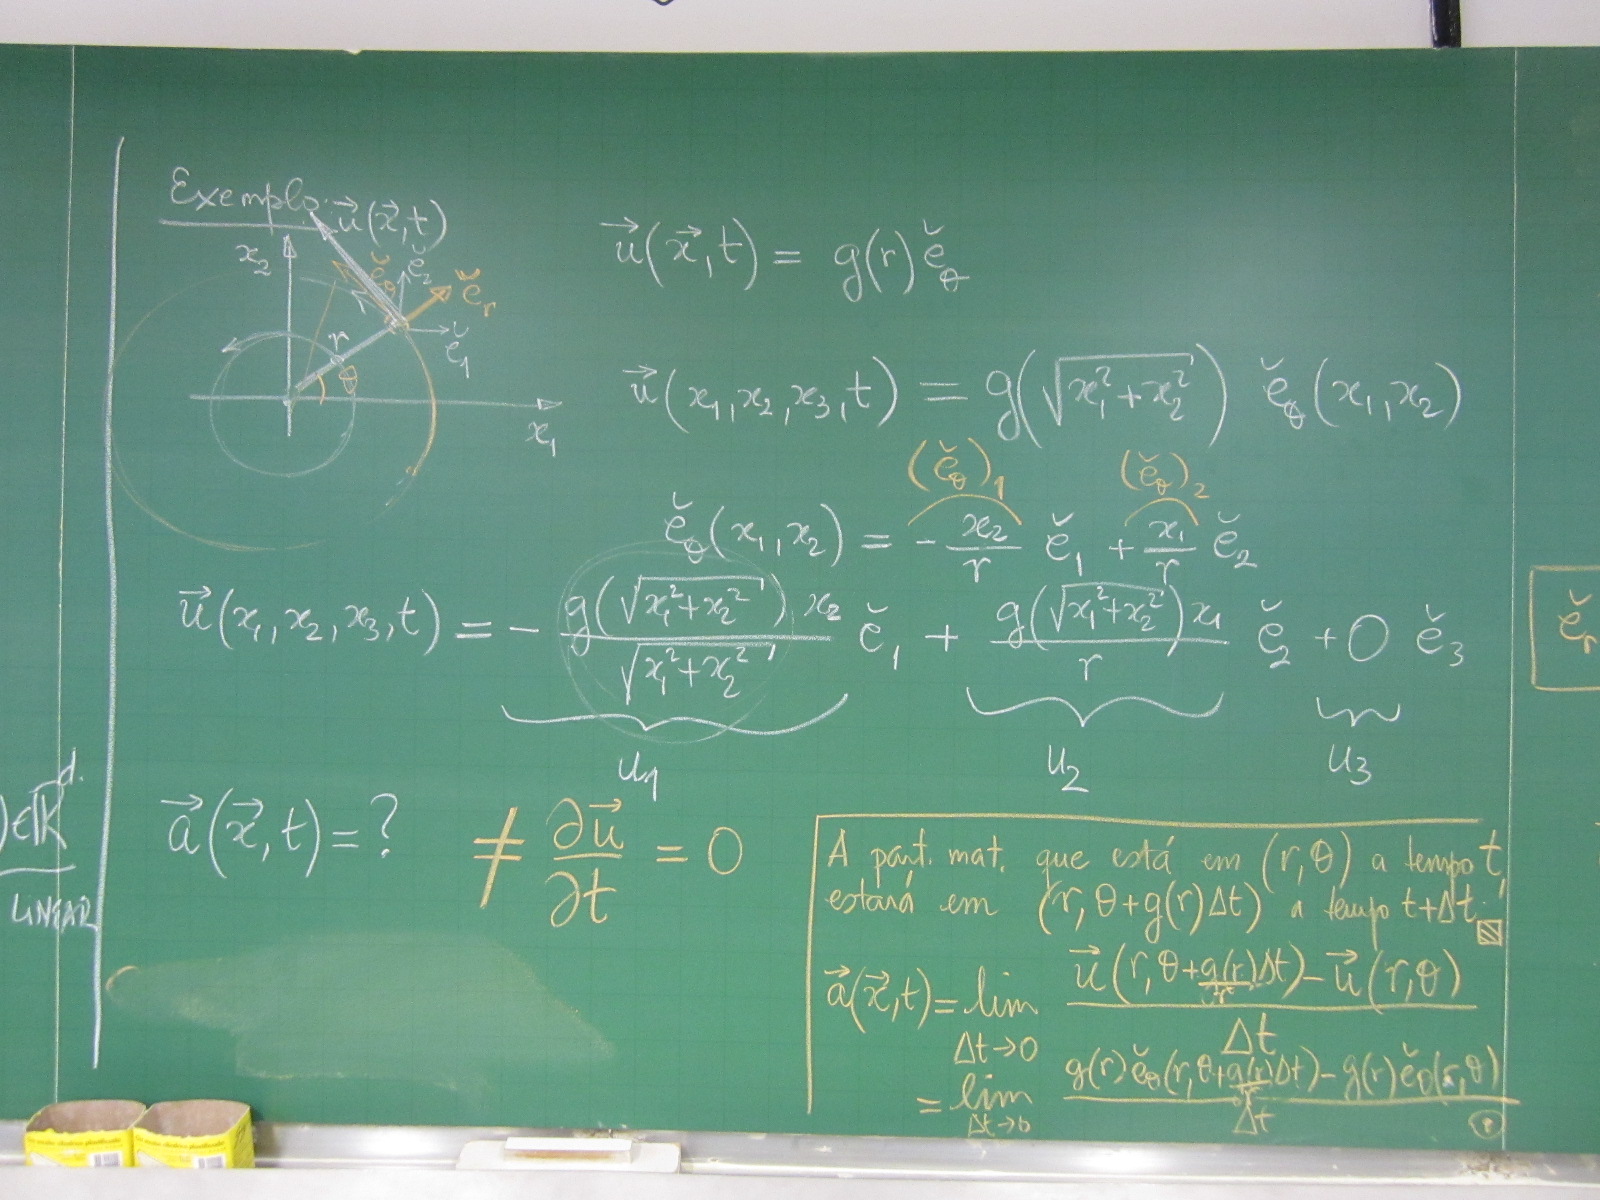 Exemplo:
u⃗(x⃗,t)
x₂
ě_θ
ě₂
ě_r
ě₁
r
θ
x₁
u⃗(x⃗,t) = g(r) ě_θ
u⃗(x₁,x₂,x₃,t) = g(√(x₁²+x₂²)) ě_θ(x₁,x₂)
(ě_θ)₁ (ě_θ)₂
ě_θ(x₁,x₂) = - x₂/r ě₁ + x₁/r ě₂
u⃗(x₁,x₂,x₃,t) = - g(√(x₁²+x₂²)) x₂ / √(x₁²+x₂²) ě₁ + g(√(x₁²+x₂²)) x₁ / r ě₂ + 0 ě₃
u₁ u₂ u₃
ě_r
) ∈ ℝ^d.
LINEAR
a⃗(x⃗,t) = ? ≠ ∂u⃗/∂t = 0
A part. mat. que está em (r,θ) a tempo t,
estará em (r, θ+g(r)Δt) a tempo t+Δt.
a⃗(x⃗,t) = lim Δt→0 u⃗(r, θ+g(r)/r Δt) - u⃗(r,θ) / Δt
= lim Δt→0 g(r) ě_θ(r, θ+g(r)/r Δt) - g(r) ě_θ(r,θ) / Δt